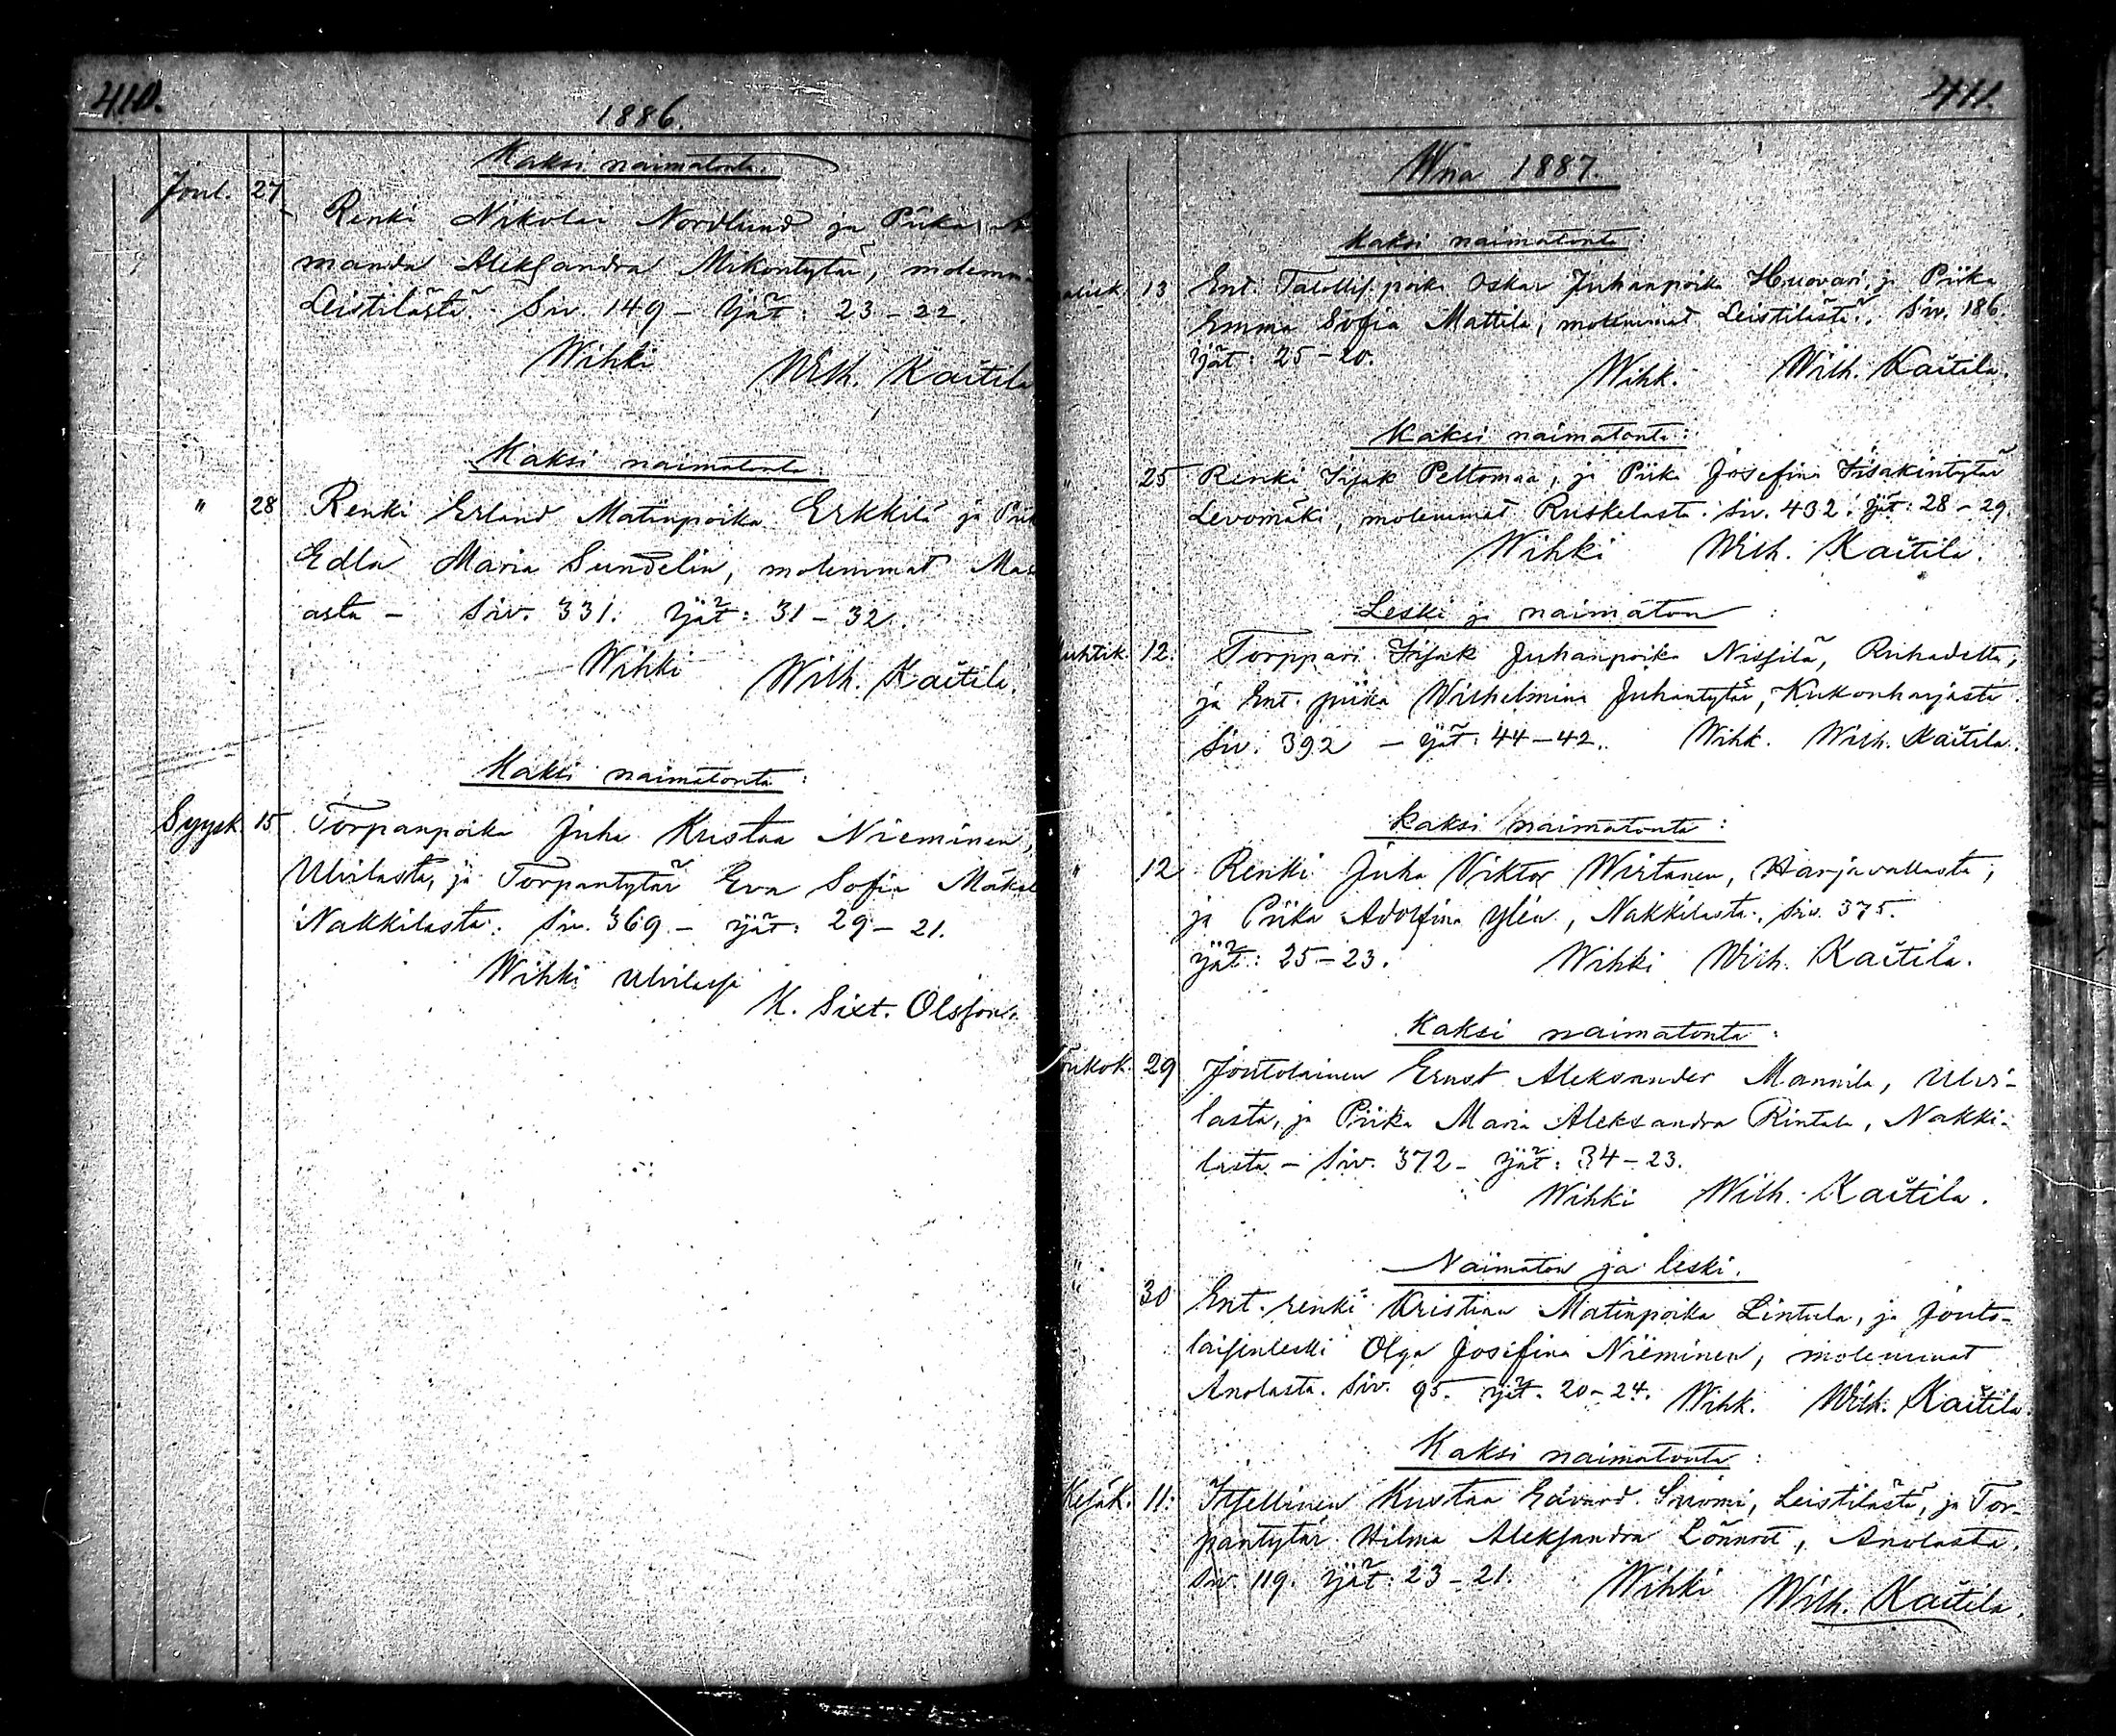 410.
1886.
Kaksi naimatonta.
Joul. 27 Renki Nikolai Nordlund ja Piika A
manda Aleksandra Mikontytär, molemm
Leistilästä. Siv. 149 – Ijät: 23 – 22.
Wihki Wilh. Kaitila
Kaksi naimatonta
" 28 Renki Erland Matinpoika Erkkilä ja Piik
Edla Maria Sundelin, molemmat Ma
asta – Siv. 331. Ijät: 31 – 32.
Wihki Wilh. Kaitila.
Kaksi naimatonta:
Syysk. 15 Torpanpoika Juha Kustaa Nieminen,
Ulvilasta, ja Torpantytär Eva Sofia Mäkel
Nakkilasta. Siv. 369 – Ijät: 29 – 21.
Wihki Ulvilassa
K. Sixt. Olsson.
411.
Wna 1887.
Kaksi naimatonta:
13 Ent. Talollis. poika Oskar Juhanpoika Huovari, ja Piika
Emma Sofia Mattila, molemmat Leistilästä. Siv. 186.
Ijät: 25 – 20. Wihk. Wilh. Kaitila.
Kaksi naimatonta:
" 25 Renki Iisak Peltomaa, ja Piika Josefina Iisakintytär
Levomäki, molemmat Ruskelasta. Siv. 432. Ijät: 28 – 29.
Wihki Wilh. Kaitila.
Leski ja naimaton:
Huhtik. 12. Torppari Iisak Juhanpoika Nissilä, Ruhadelta,
ja Ent. piika Wilhelmina Juhantytär, Kukonharjasta.
Siv. 392 – Ijät: 44 – 42. Wihk. Wilh. Kaitila.
Kaksi naimatonta:
" 12 Renki Juha Viktor Wirtanen, Harjavallasta,
ja Piika Adolfina Ylén, Nakkilasta, Siv. 375.
Ijät: 25 – 23. Wihki Wilh. Kaitila.
Kaksi naimatonta:
Toukok. 29 Joutolainen Ernst Aleksander Mannila, Ulvi-
lasta, ja Piika Maria Aleksandra Rintala, Nakki-
lasta – Siv. 372 – Ijät: 34 – 23.
Wihki Wilh. Kaitila.
Naimaton ja leski.
" 30 Ent. renki Kristian Matinpoika Lintula, ja Jouto-
laisenleski Olga Josefina Nieminen, molemmat
Anolasta. Siv. 95. Ijät. 20 – 24. Wihk. Wilh. Kaitila
Kaksi naimatonta:
Kesäk. 11. Itsellinen Kustaa Edvard Suomi, Leistilästä, ja Tor-
pantytär Hilma Aleksandra Lönnrot, Anolasta.
Siv. 119. Ijät: 23 – 21. Wihki Wilh. Kaitila.